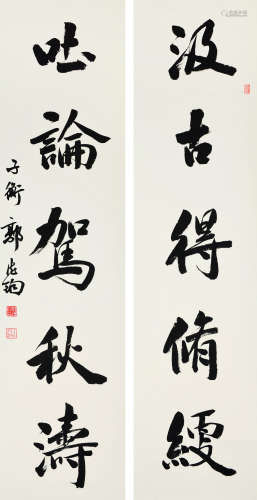 汲古得脩綆
吐論駕秋濤
子衡 郭